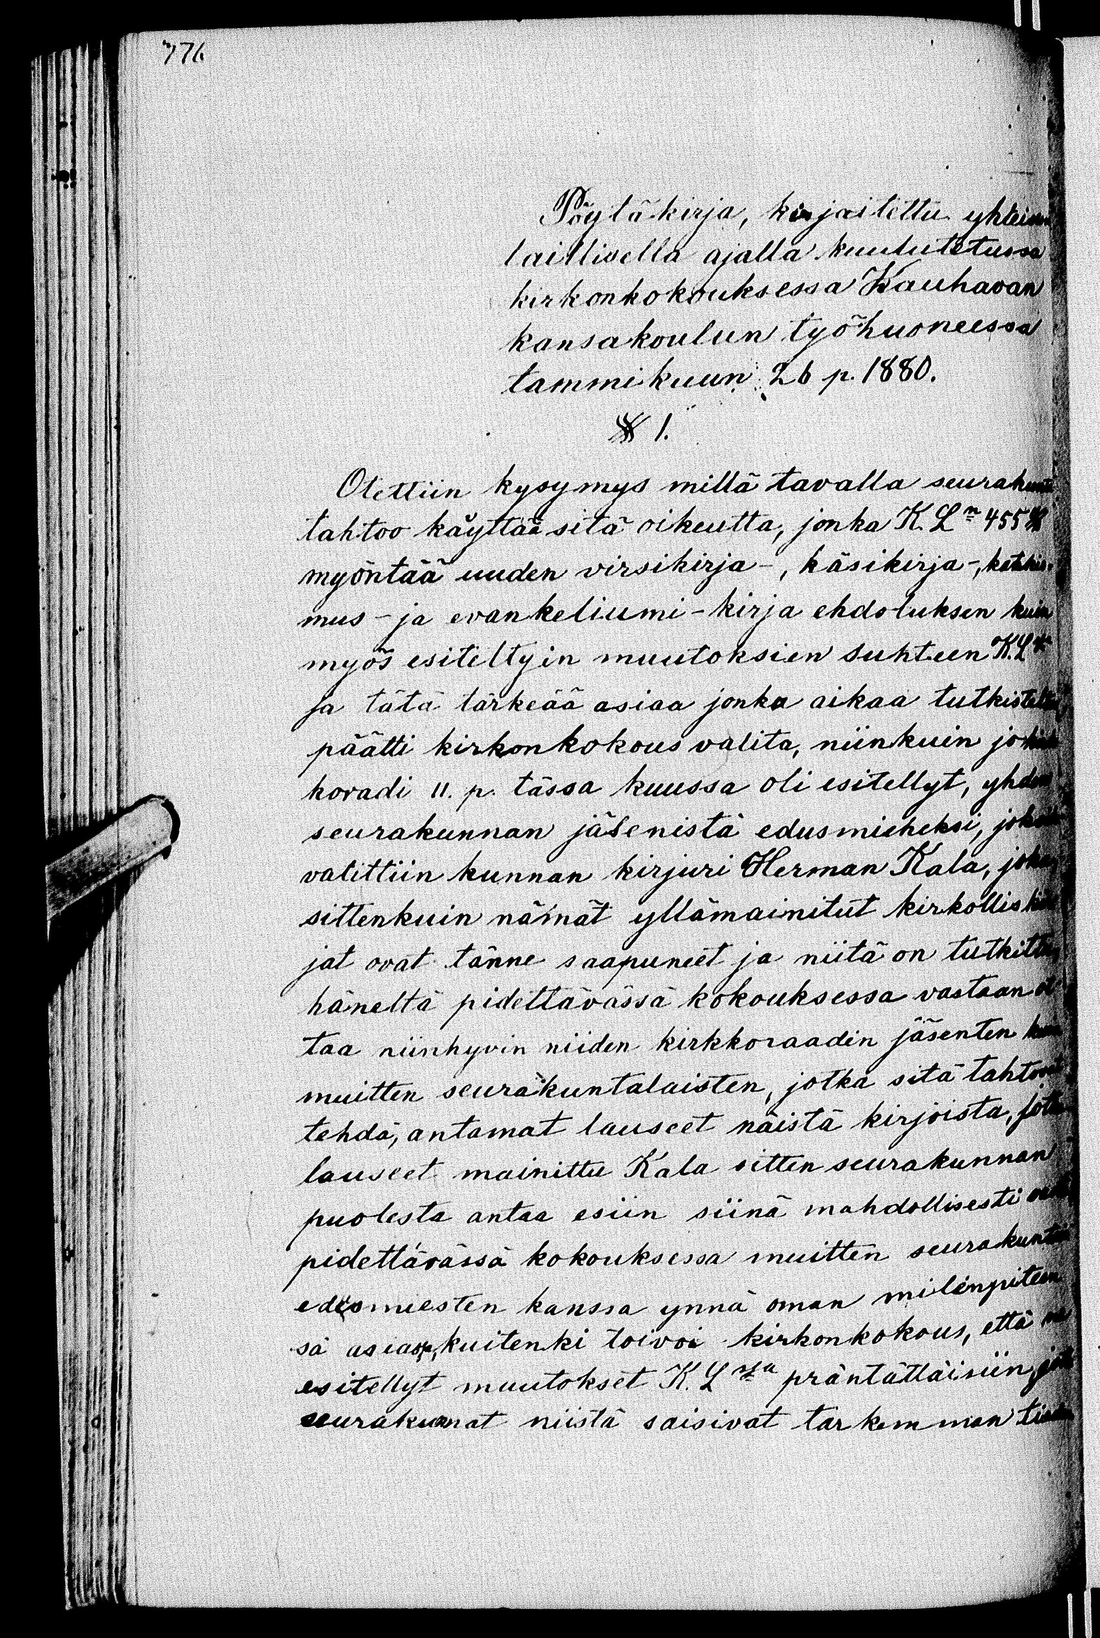 776
Pöytäkirja, kirjaitettu
laillisella ajalla kuulutetussa
kirkonkokouksessa Kauhavan
kansakoulun työhuoneessa
tammikuun 26 p. 1880.
§ 1.
Otettiin kysymys millä tavalla
tahtoo käyttää sitä oikeutta, jonka K. L:n 455 §
myöntää uuden virsikirja-, käsikirja-,
mus- ja evankeliumi-kirja ehdotuksen kuin
myös esiteltyin muutoksien suhteen K.L
ja tätä tärkeää asiaa jonku aikaa
päätti kirkonkokous valita, niinkuin jo
koradi 11. p. tässa kuussa oli esitellyt, yhden
seurakunnan jäsenistä edusmieheksi,
valittiin kunnan kirjuri Herman Kala, joka
sittenkuin nämät yllämainitut
jat ovat tänne saapuneet ja niitä on tutkittu,
häneltä pidettävässä kokouksessa vastaan
taa niinhyvin niiden kirkkoraadin jäsenten
muitten seurakuntalaisten, jotka sitä
tehdä, antamat lauseet näistä kirjoista,
lauseet mainittu Kala sitten seurakunnan
puolesta antaa esiin siinä mahdollisesti
pidettävässä kokouksessa muitten
edusmiesten kanssa ynnä oman
sä asiassa, kuitenki toivoi kirkonkokous, että
esitellyt muutokset K. L:ssa präntättäisiin,
seurakunnat niistä saisivat tarkemman